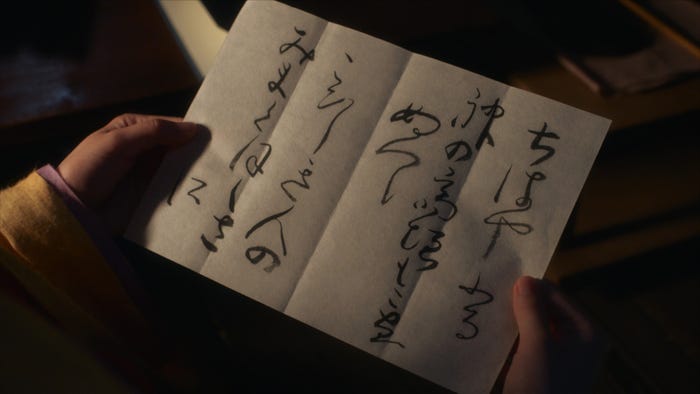 ちはやふる
神のいかきもこえ
ぬへし
こひしき人の
みまくほしさ
に